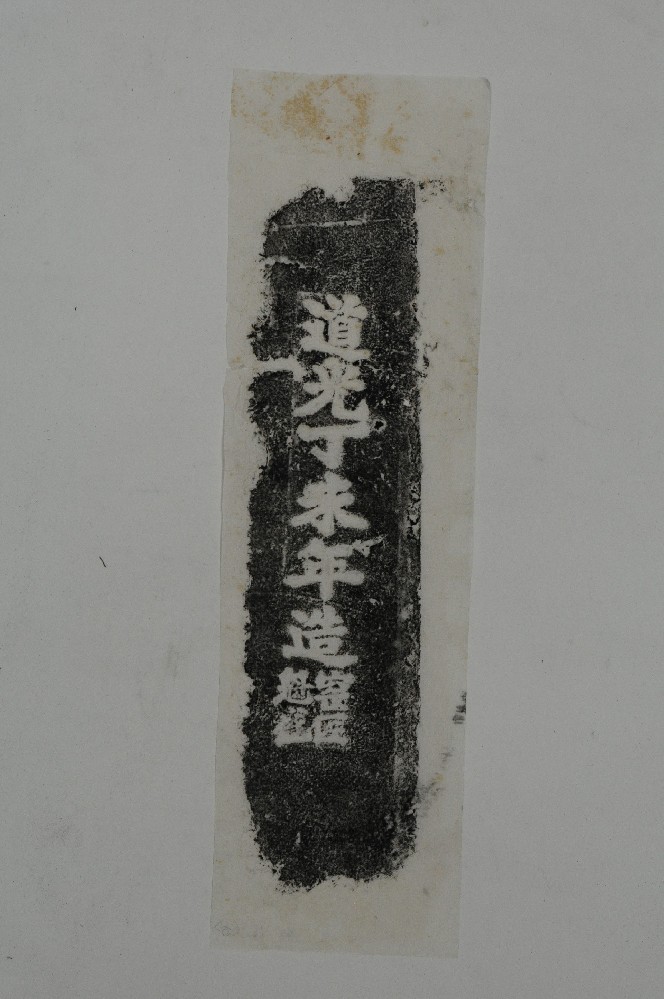 道光丁未年造